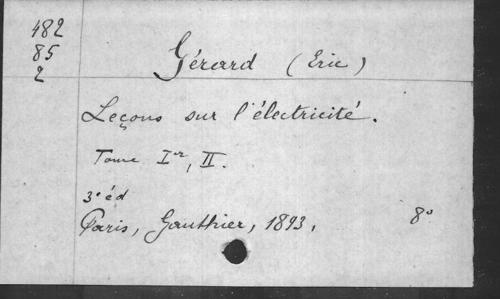 482
85
2
Gérard (Eric)
Leçons sur l'électricité.
Tome Ier, II.
3e éd
Paris, Gauthier, 1893. 8o